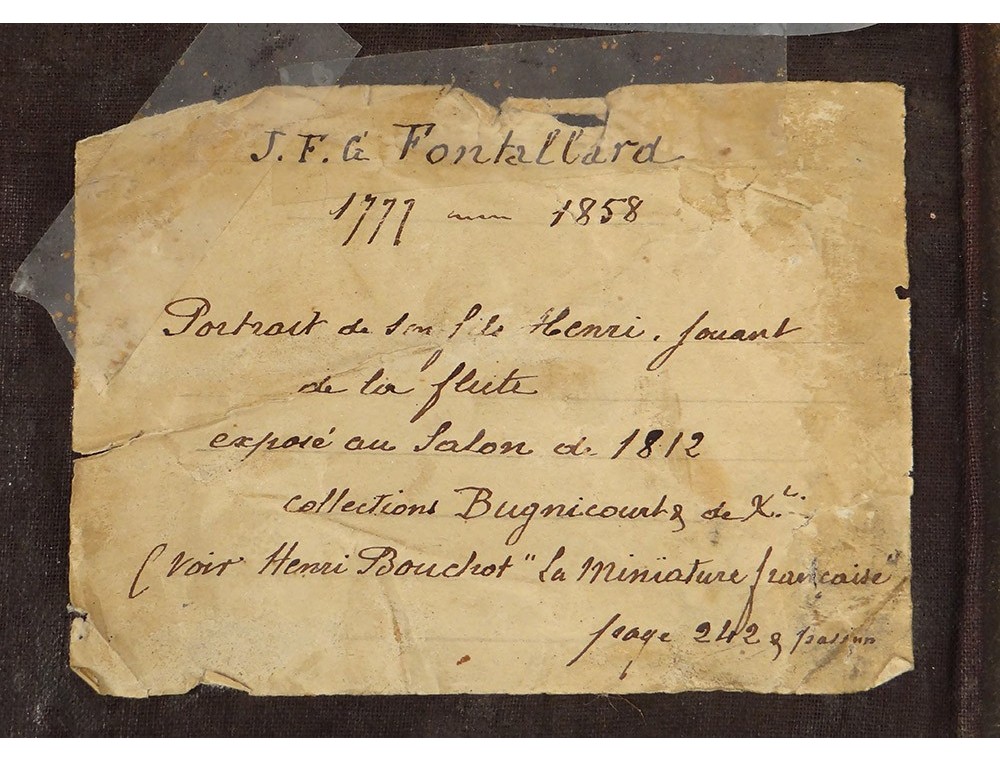 J. F. G Fontallard
1777 — 1858
Portrait de son fils Henri, jouant
de la flute
exposé au Salon de 1812
collections Bugnicourt & de X
(voir Henri Bouchot "La Miniature française"
page 242 & passim